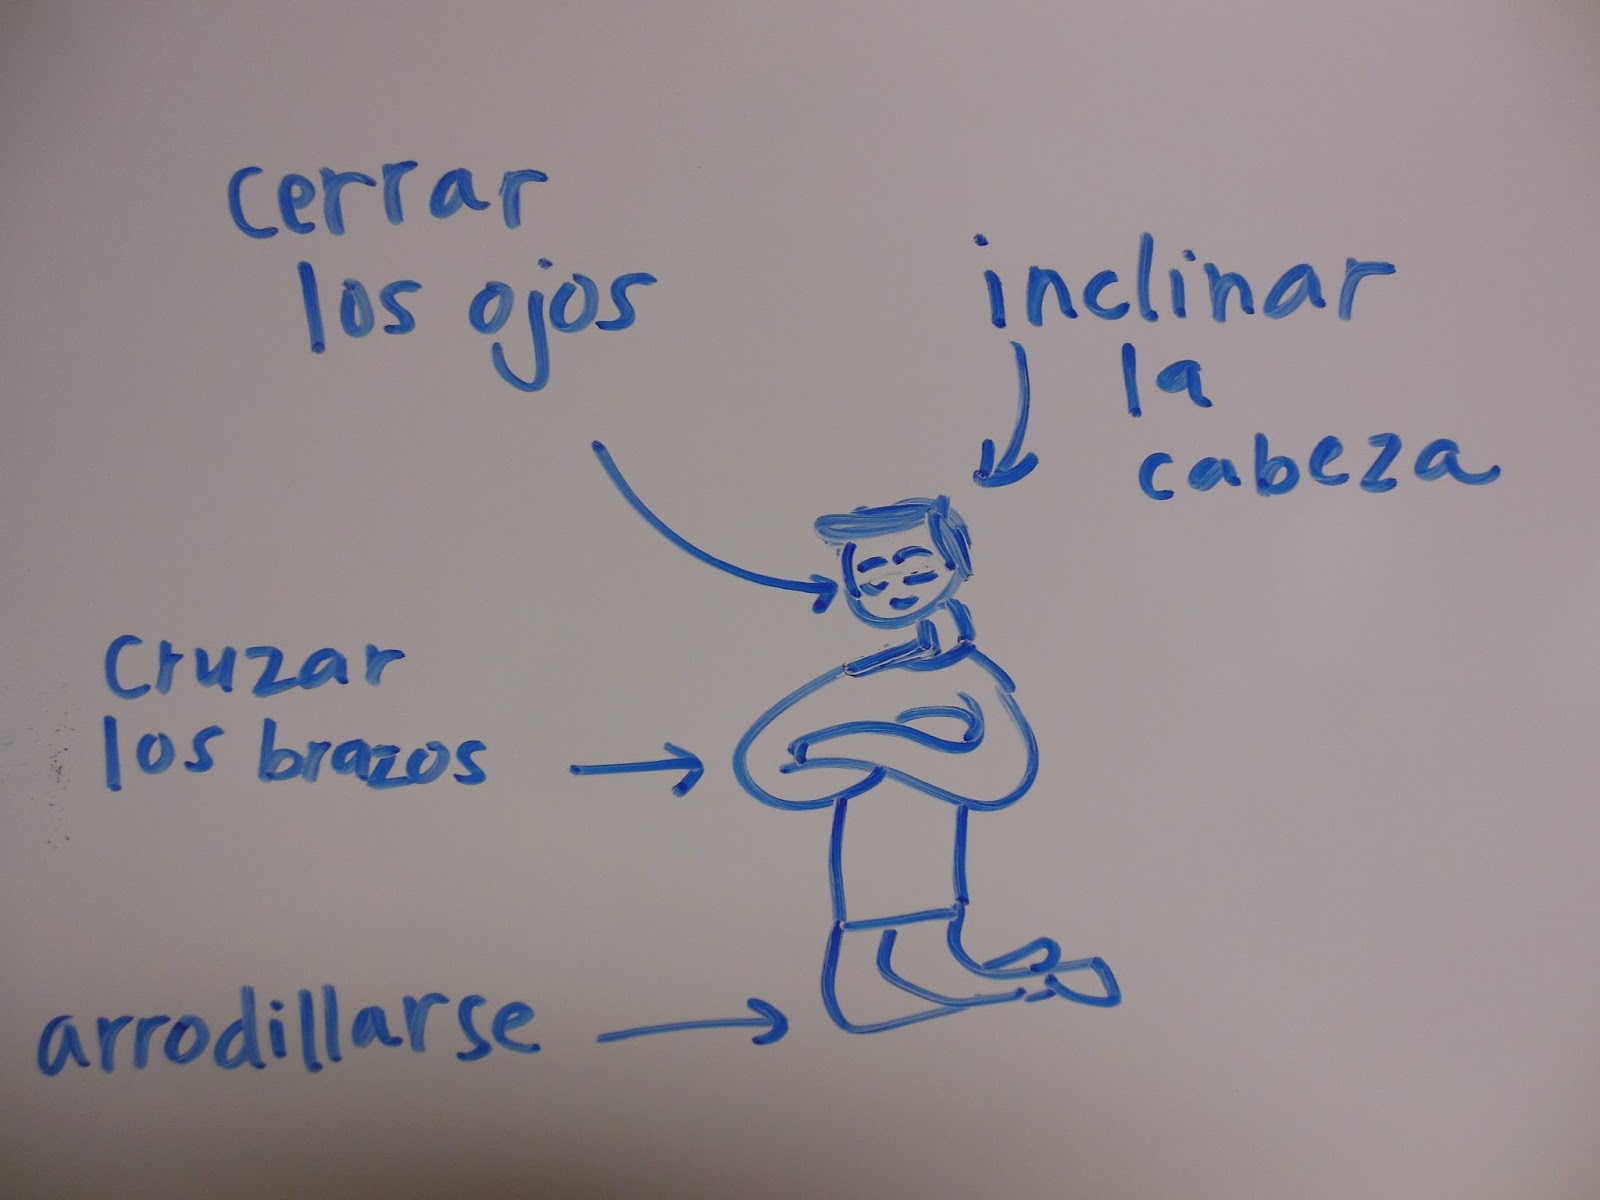 cerrar
los ojos
inclinar
la
cabeza
cruzar
los brazos
arrodillarse